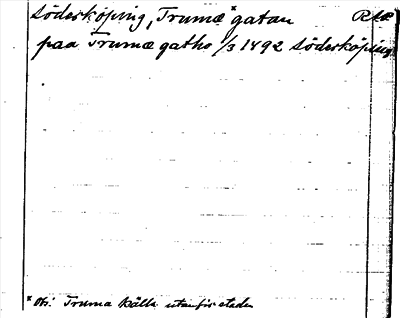 söderköping, Trumæ*gatan
paa Trumæ gatho 1/3 1492 söderköping
* Obs! Truma källa utanför staden